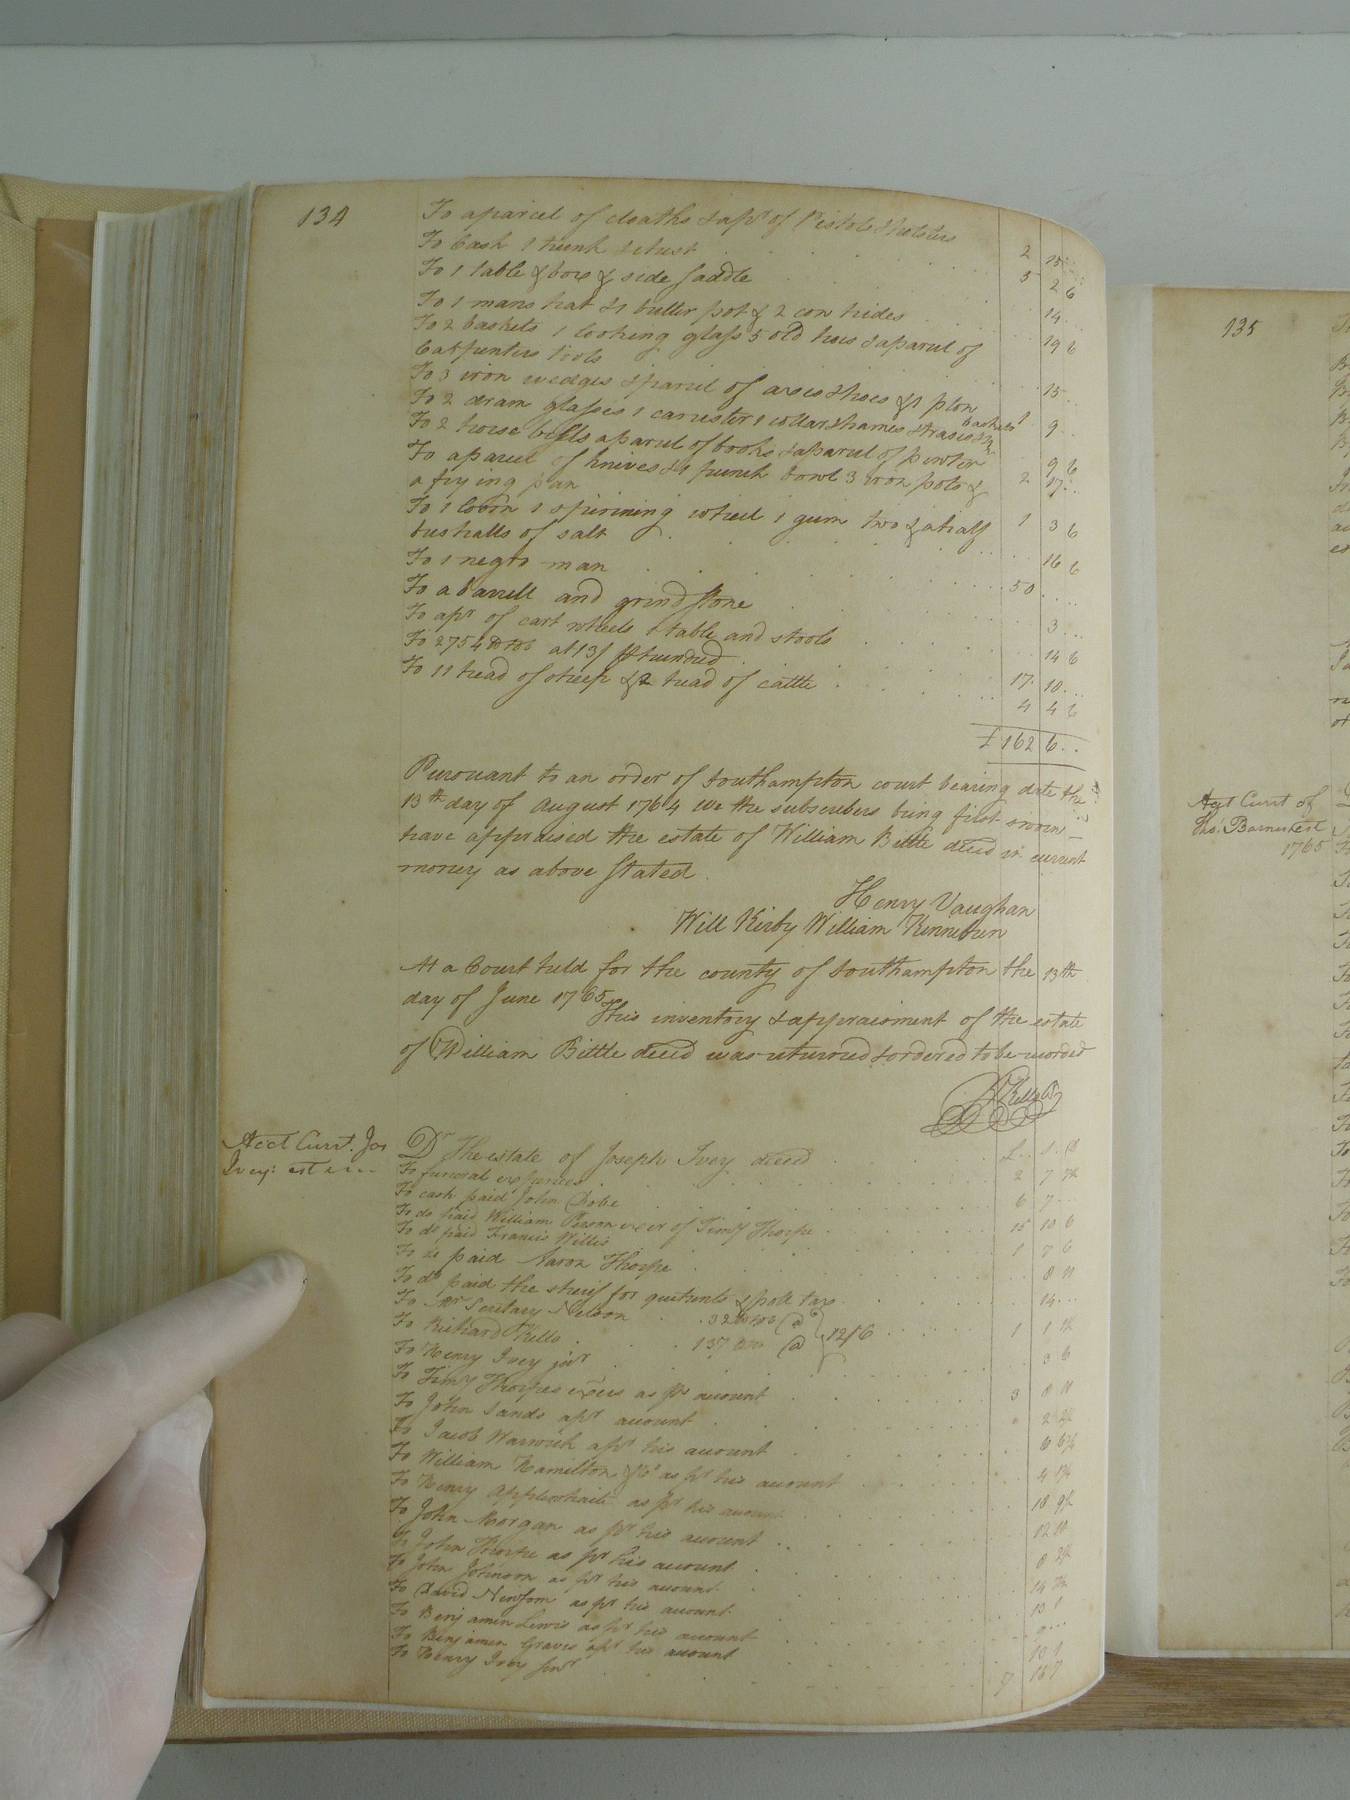 134
To a parcel of cloaths & a pr of Pistols & holsters 2 15
To Cash 1 trunk & chest 5 2 6
To 1 table & box & side saddle 14
To 1 mans hat & 1 butter pot & 2 cow hides 19 6
To 2 baskets 1 looking glass 5 old hoes & a parcel of
Carpenters tools 15
To 3 iron wedges & parcel of axes & hoes & 1 plow 1 9
To 2 dram glasses 1 canester 1 collar & hames & traces baskets 9 6
To 2 horse bells a parcel of books & a parcel of pewter 2 17
To a parcel of knives & 1 punch bowl 3 iron pots &
a frying pan 1 3 6
To 1 loom 1 spinning wheel 1 gum two & a half
bushalls of salt 16 6
To 1 negro man 50
To a barrell and grind stone 3
To a pr of cart wheels 1 table and stools 14 6
To 2754 lb tob at 13/ pr hundred 17 10
To 11 head of sheep & 2 head of cattle 4 4 6
£ 162 6
Pursuant to an order of Southampton court bearing date the
13th day of August 1764 We the subscribers being first sworn
have appraised the estate of William Bittle decd in current
money as above stated.
Henry Vaughan
Will Kirby William Kinnebrew
At a Court held for the county of Southampton the 13th
day of June 1765
This inventory & appraisment of the estate
of William Bittle decd was returned & ordered to be recorded
Acct Currt. Jos
Ivey: est
Dr The estate of Joseph Ivey decd £ S D
To funeral expences 2 7
To cash paid John 6 7
To do paid William Person exer of Timy Thorpe 15 10 6
To do paid Francis Willis 1 7 6
To do paid Aaron Thorpe 8 11
To do paid the sherif for quitrents & poll tax 14
To Mr Secritary Nelson 32 lb tob @
To Richard Kello 137 @ } 12/6 1 1
To Henry Ivey junr 3 6
To Timy Thorpes exers as pr account 3 8 11
To John Sands a pr account 2
To Jacob Warwick a pr his account 6
To William Hamilton as pr his account 4
To Henry Applewhaite as pr his account 18
To John Morgan as pr his account 12
To John Thorpe as pr his account 8
To John Johnson as pr his account 14
To David Newsom as pr his account 13 1
To Benjamin Lewis as pr his account
To Benjamin Graves a pr his account
To Henry Ivey senr
135
Acct Currt of
Thos. Barns est
1765